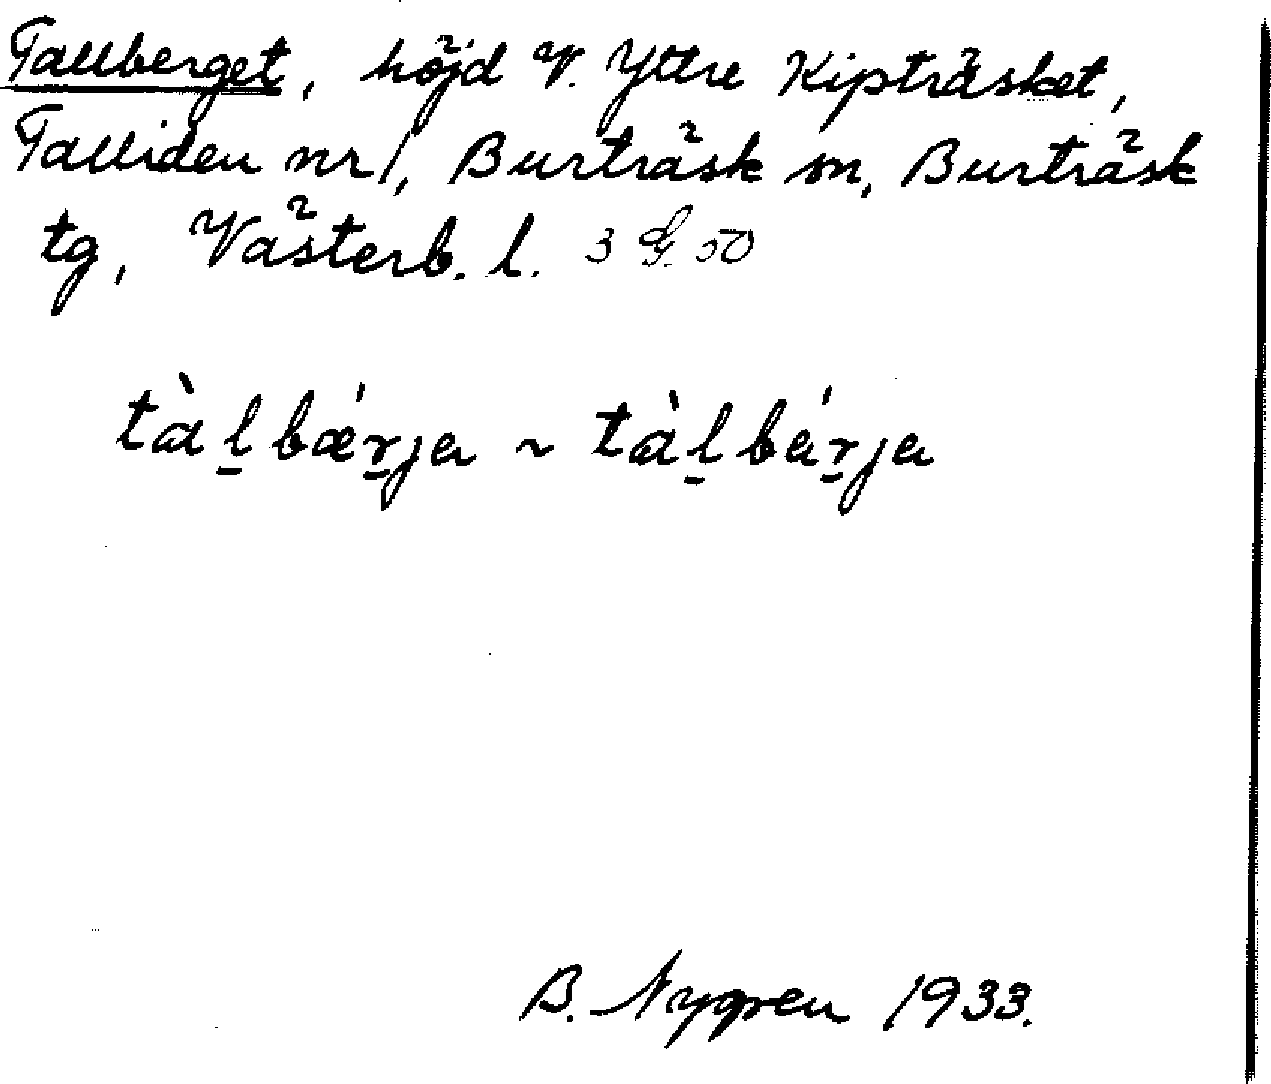 Tallberget, höjd V. Yttre Kipträsket,
Talliden nr 1, Burträsk sn, Burträsk
tg, Västerb. l. 3 G. 50
tàl̠bǽr̠ja ~ tàl̠bár̠ja
B. Nygren 1933.